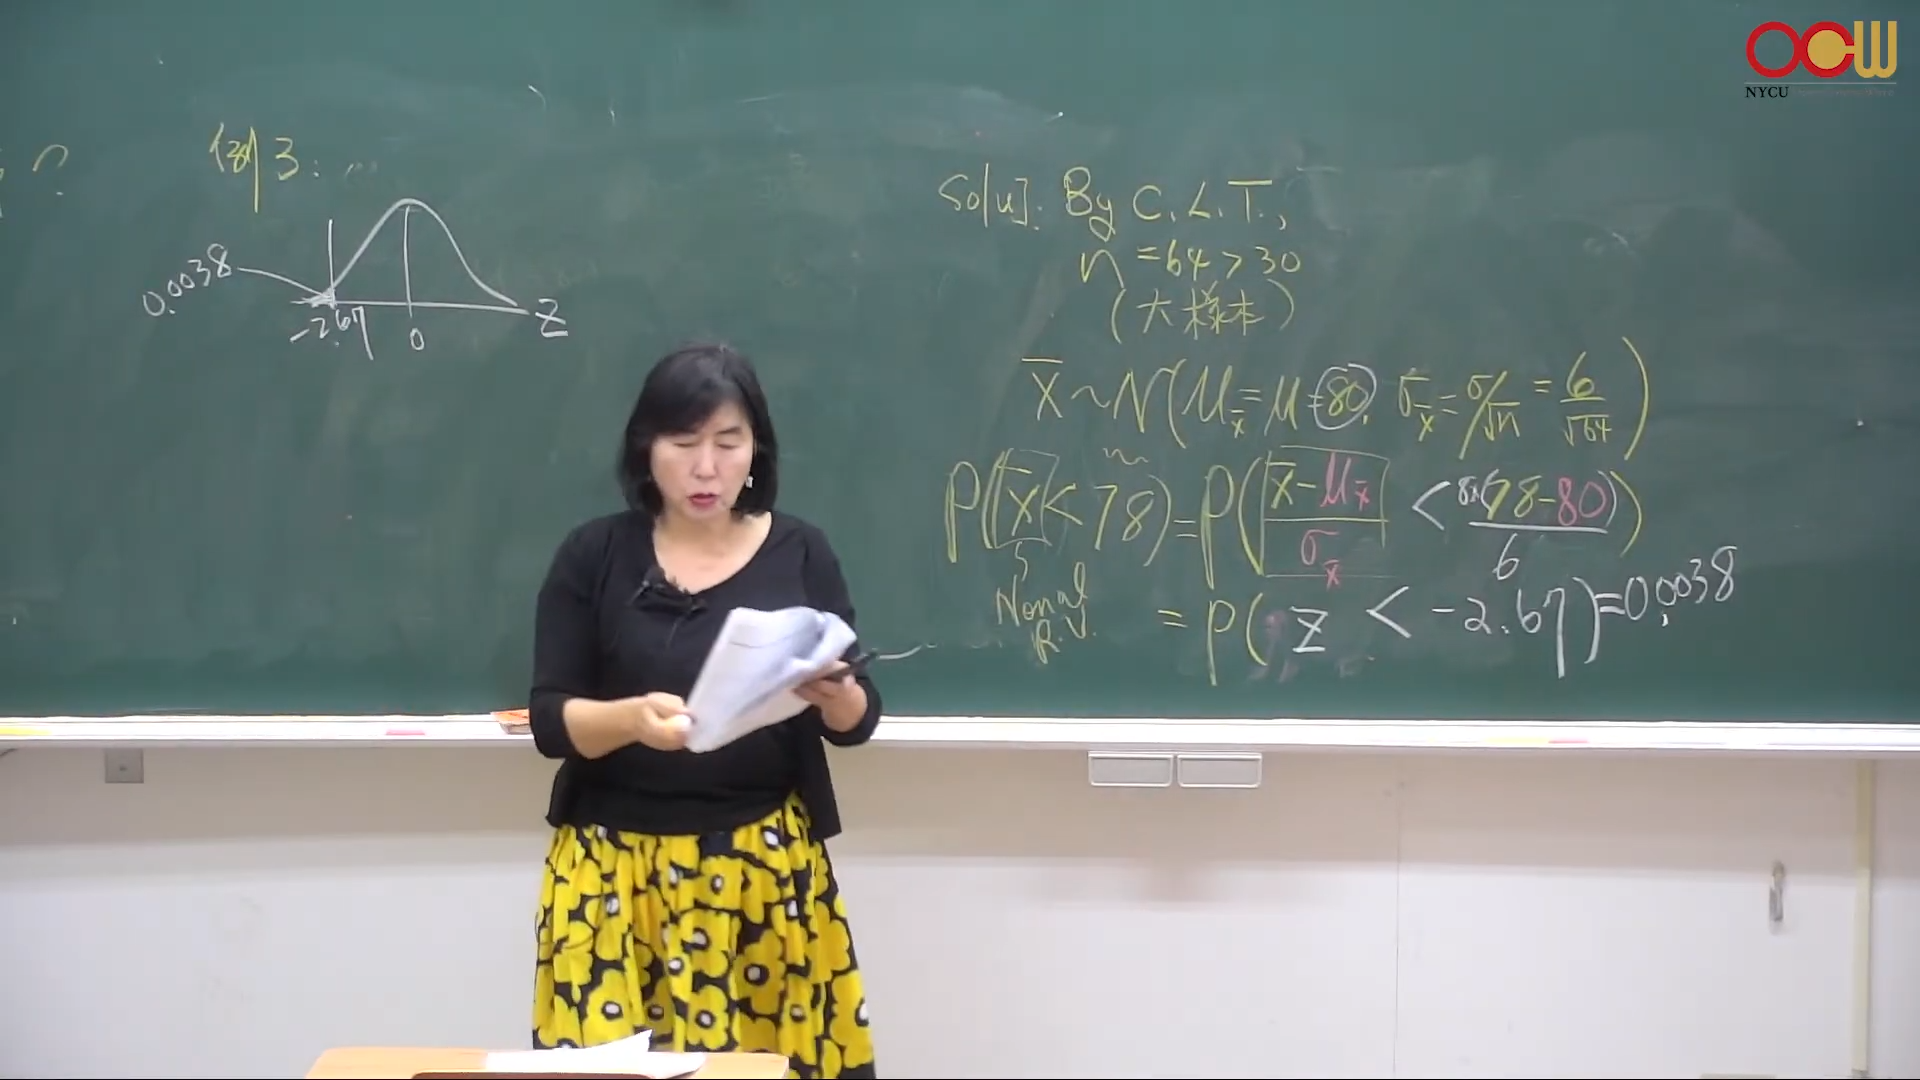 ?
例3:
0.0038
-2.67 0 Z
Sol[u]. By C.L.T.,
n = 64 > 30
(大樣本)
x̄ ~ N(μx̄ = μ = 80, σx̄ = σ/√n = 6/√64)
P(x̄ < 78) = P((x̄ - μx̄)/σx̄ < 8x(78-80)/6)
Nomal
R.V.
= P(Z < -2.67) = 0.0038
OCW
NYCU